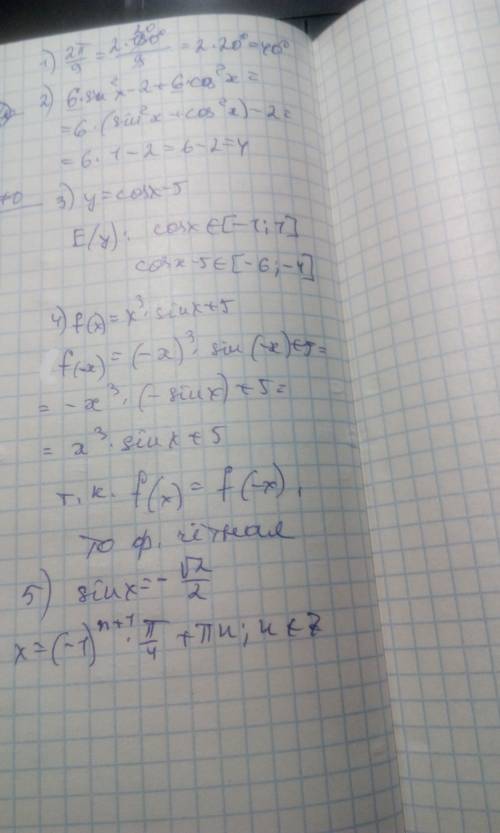 1) 2π/9 = 2·180°/9 = 2·20° = 40°
2) 6·sin²x-2+6·cos²x=
=6·(sin²x+cos²x)-2=
=6·1-2=6-2=4
3) y=cosx-5
E(y): cosx∈[-1;1]
cosx-5∈[-6;-4]
4) f(x)=x³·sinx+5
f(-x)=(-x)³·sin(-x)+5=
= -x³·(-sinx)+5=
= x³·sinx+5
т.к. f(x)=f(-x),
то ф. чётная
5) sinx=-√2/2
x=(-1)ⁿ⁺¹·π/4+πn; n∈Z